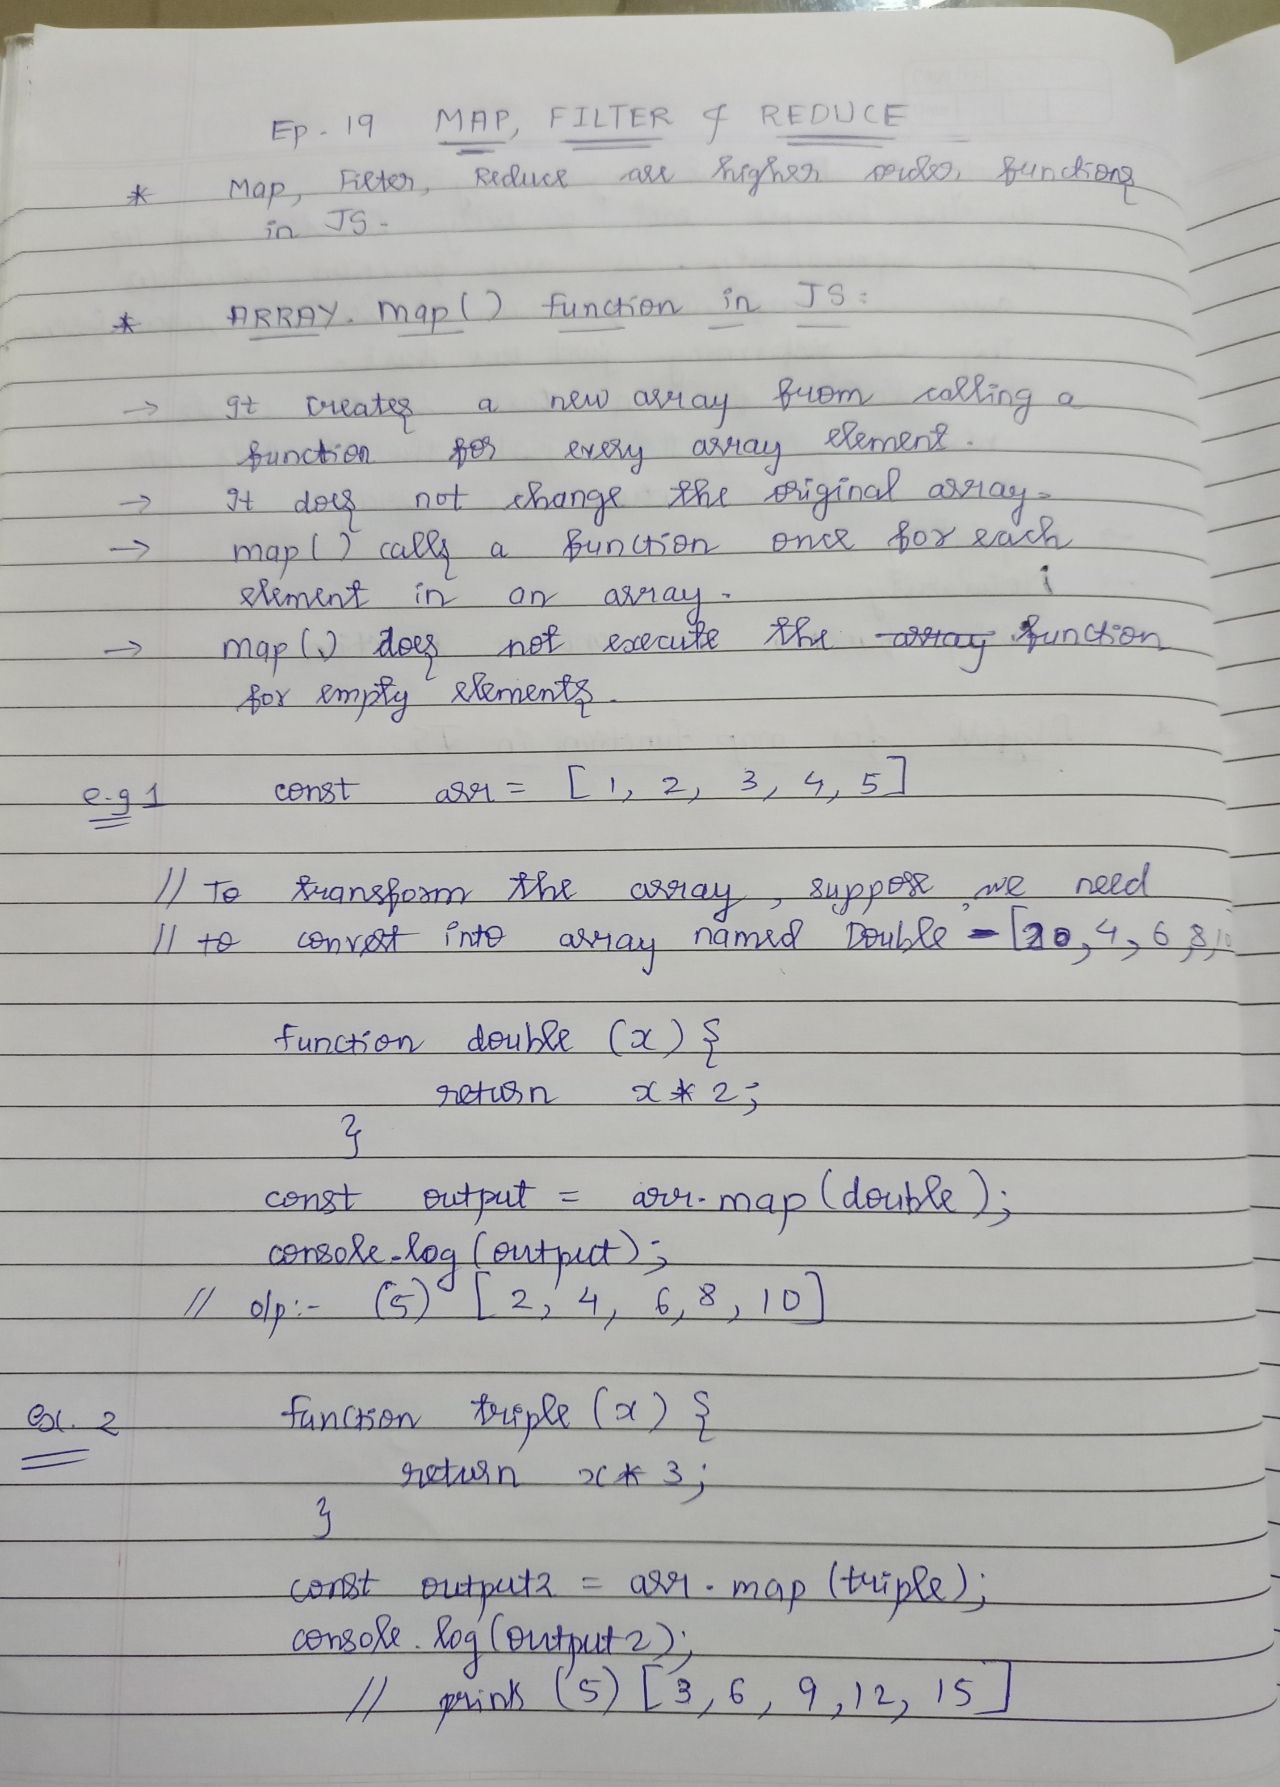 Ep. 19 MAP, FILTER & REDUCE
* Map, Filter, Reduce are higher order functions
in JS.
* ARRAY. map() function in JS:
→ It creates a new array from calling a
function for every array element.
→ It does not change the original array.
→ map() calls a function once for each
element in an array.
→ map() does not execute the array function
for empty elements.
e.g 1 const arr = [1, 2, 3, 4, 5]
// To transform the array, suppose we need
// to convert into array named Double - [20, 4, 6, 8, 10
function double (x) {
return x * 2;
}
const output = arr.map(double);
console.log(output);
// o/p:- (5) [2, 4, 6, 8, 10]
ex. 2 function triple (x) {
return x * 3;
}
const output2 = arr.map (triple);
console.log(output2);
// prints (5) [3, 6, 9, 12, 15]